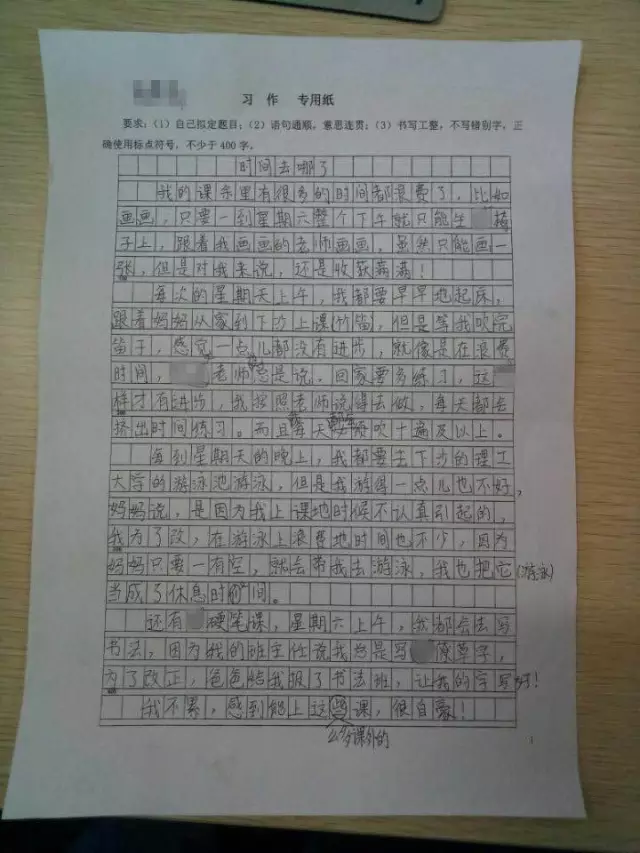 习 作 专用纸
要求：（1）自己拟定题目；（2）语句通顺，意思连贯；（3）书写工整，不写错别字，正
确使用标点符号，不少于400字。
时间去哪了
我的课余里有很多的时间都浪费了，比如
画画，只要一到星期六整个下午就只能坐椅
子上，跟着我画画的老师画画，虽然只能画一
张，但是对我来说，还是收获满满！
每次的星期天上午，我都要早早地起床，
跟着妈妈从家到下沙上课(竹笛，但是等我吹完
笛子，感觉一点儿都没有进步，就像是在浪费
时间，老师总是说，回家要多练习，这
样才有进步，我按照老师说得去做，每天都会
挤出时间练习。而且每天都要吹十遍及以上。
每到星期天的晚上，我都要去下沙的理工
大学的游泳池游泳，但是我游得一点儿也不好，
妈妈说，是因为我上课地时候不认真引起的，
我为了改，在游泳上浪费地时间也不少，因为
妈妈只要一有空，就会带我去游泳，我也把它(游泳)
当成了休息时间。
还有硬笔课，星期六上午，我都会去写
书法，因为我的班主任说我总是写潦草字，
为了改正，爸爸给我报了书法班，让我的字写好！
我不累，感到能上这些课，很自豪！
么多课外的